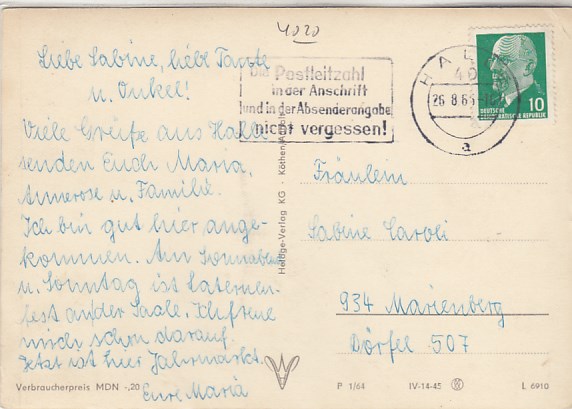 4020
Liebe Sabine, liebe Tante
u. Onkel!
Viele Grüße aus Halle
senden Euch Maria,
Annerose u. Familie.
Ich bin gut hier ange-
kommen. Am Sonnabend
u. Sonntag ist Laternen-
fest an der Saale. Ich freue
mich schon darauf.
Jetzt ist hier Jahrmarkt.
Eure Maria
Verbraucherpreis MDN -,20
Die Postleitzahl
in der Anschrift
und in der Absenderangabe
nicht vergessen!
HALLE
40
26.8.6
a
10
DEUTSCHE
DEMOKRATISCHE REPUBLIK
Heldge-Verlag KG · Köthen/Anhalt
Fräulein
Sabine Caroli
934 Marienberg
Dörfel 507
P 1/64 IV-14-45 L 6910